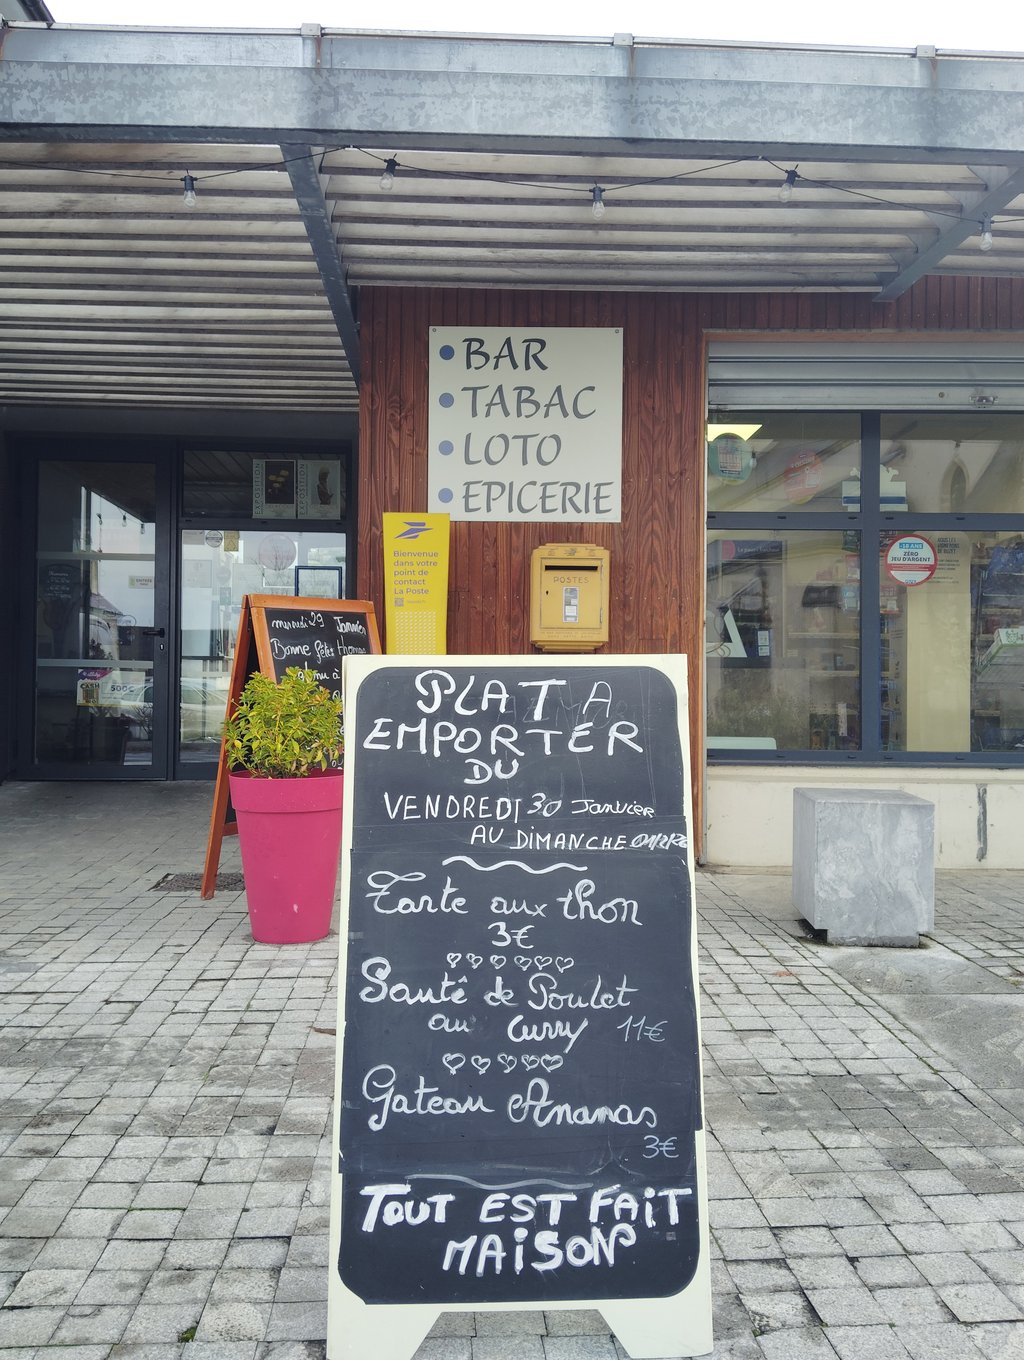 BAR
TABAC
LOTO
EPICERIE
EXPOSITION
EXPOSITION
Bienvenue
dans votre
point de
contact
La Poste
POSTES
-18 ANS
ZÉRO
JEU D'ARGENT
ENTRÉE
CASH
500€
29 Janvier
Bonne fête
PLAT A
EMPORTER
DU
VENDREDI 30 Janvier
AU DIMANCHE
Tarte aux thon
3€
Sauté de Poulet
au Curry 11€
Gateau Ananas
3€
TOUT EST FAiT
MAiSON